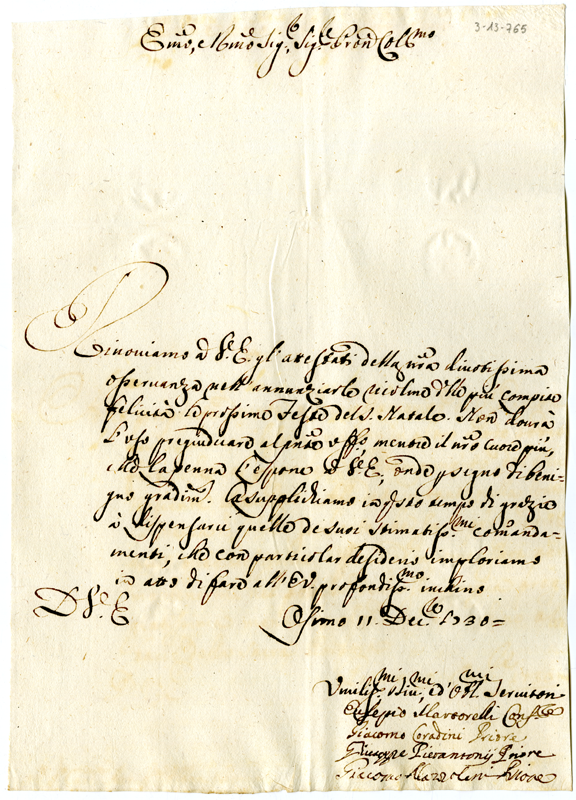 3-13-765
Em̃o, e Rm̃o Sig.r Sig.r Pron̄ Col.mo
Rinoviamo à V.E. gl'attestati della nr̃a divotissima
osservanza nell'annunziarle ricolme delle più compite
felicità le prossime Feste del S. Natale. Non dovrà
l'uso pregiudicare al pñte off.o, mentre il nr̃o cuore più,
che la penna l'espone à V.E., onde p segno di beni-
gno gradim.to La supplichiamo in q̃sto tempo di grazie
à dispensarci quelle de suoi stimatiss.mi comanda-
menti, che con particolar desiderio imploriamo
in atto di fare all'E.V. profondiss.mo inchino
D V.E.
Osimo 11 Dec.e 1730=
Umiliss.mi Div.mi, ed Obl.mi Servitori
Giuseppe Martorelli Conf.re
Giacomo Coradini Priore
Giuseppe Pierantonij Priore
Giacomo Mazzoleni Priore